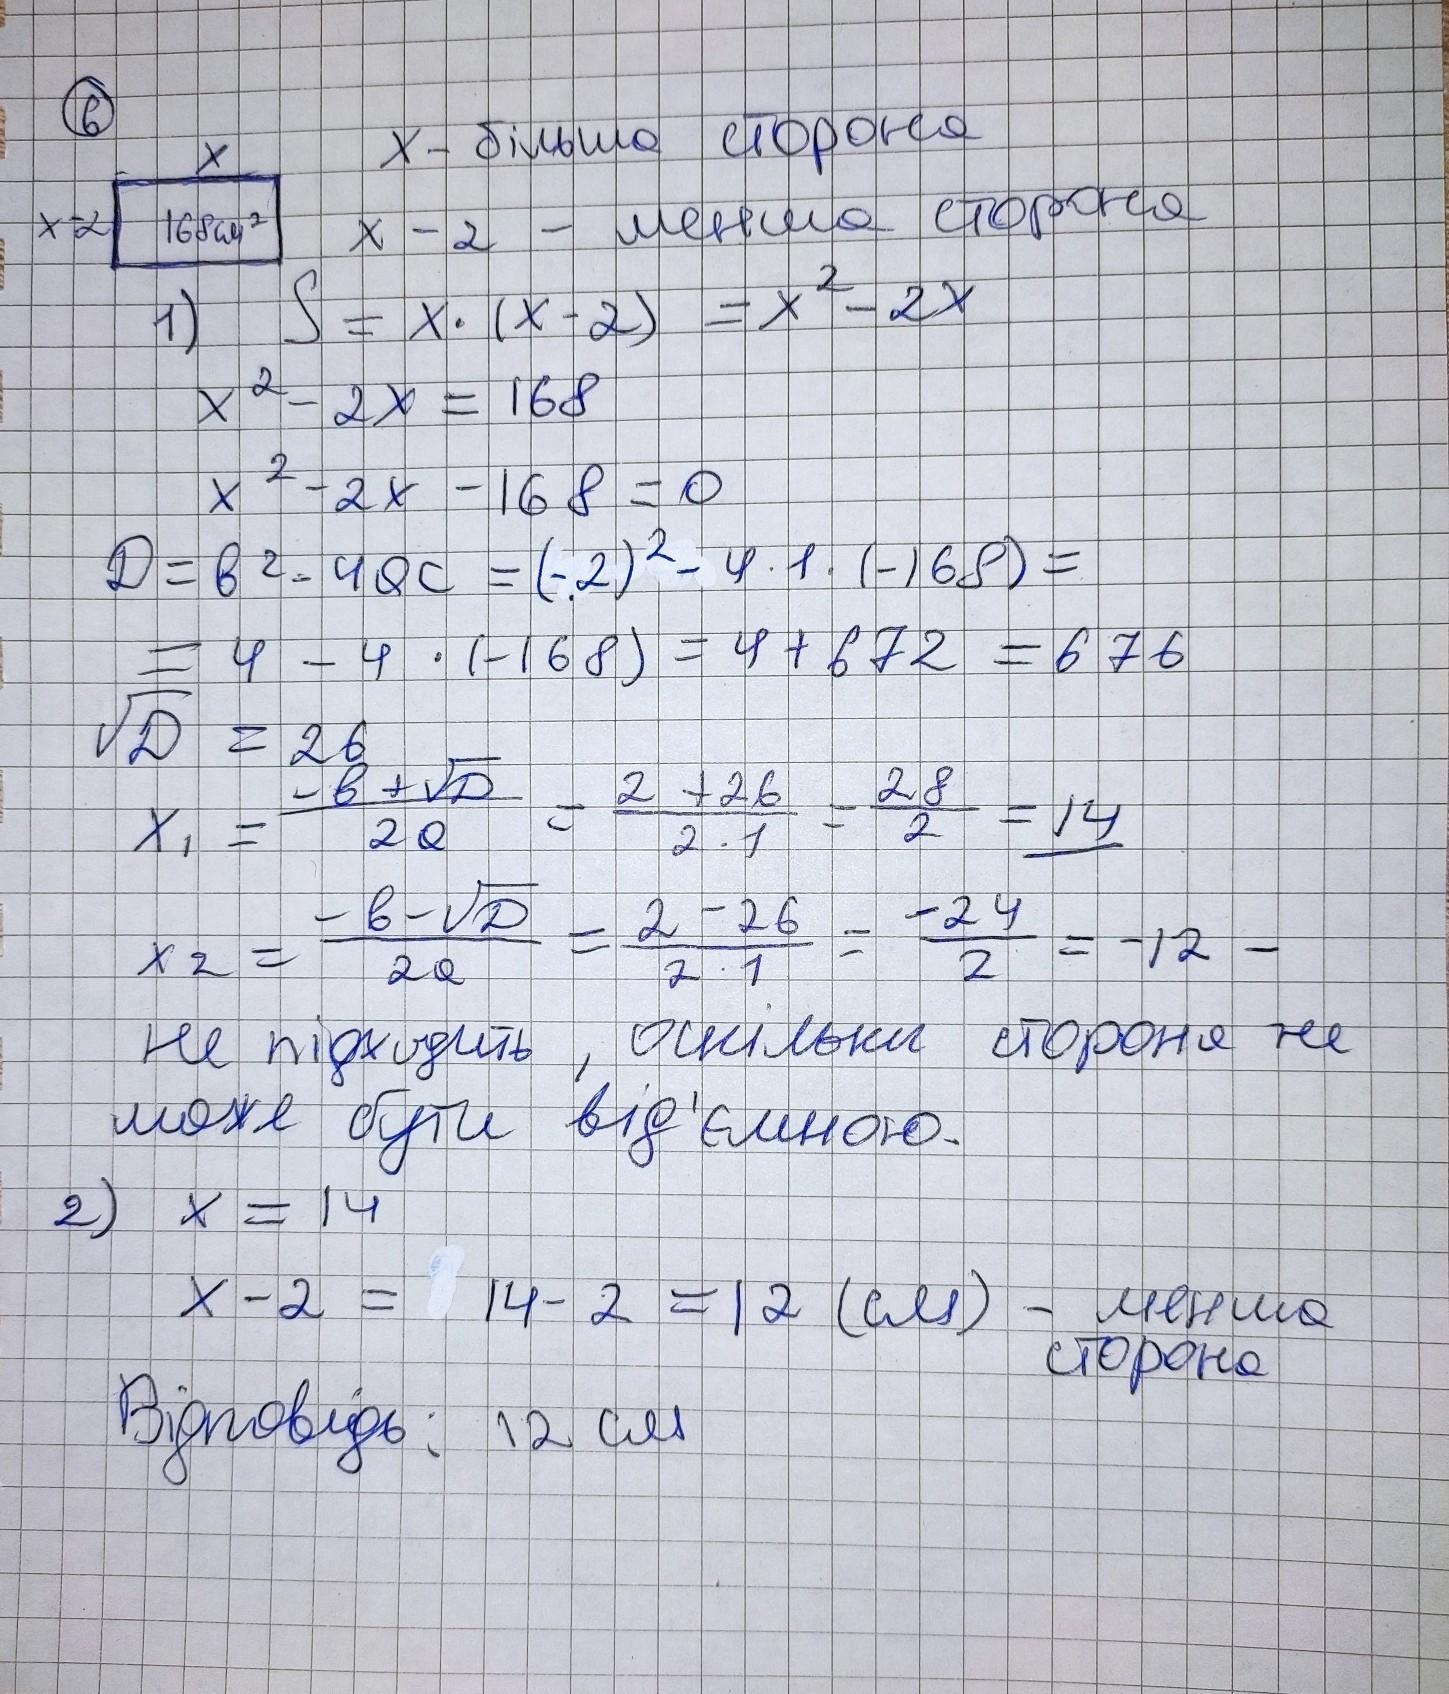 6
x
x - більша сторона
x-2
168см²
x - 2 - менша сторона
1) S = x · (x - 2) = x² - 2x
x² - 2x = 168
x² - 2x - 168 = 0
D = b² - 4ac = (-2)² - 4 · 1 · (-168) =
= 4 - 4 · (-168) = 4 + 672 = 676
√D = 26
x₁ = (-b + √D)/(2a) = (2 + 26)/(2 · 1) = 28/2 = 14
x₂ = (-b - √D)/(2a) = (2 - 26)/(2 · 1) = -24/2 = -12 -
не підходить, оскільки сторона не
може бути від'ємною.
2) x = 14
x - 2 = 14 - 2 = 12 (см) - менша
сторона
Відповідь: 12 см